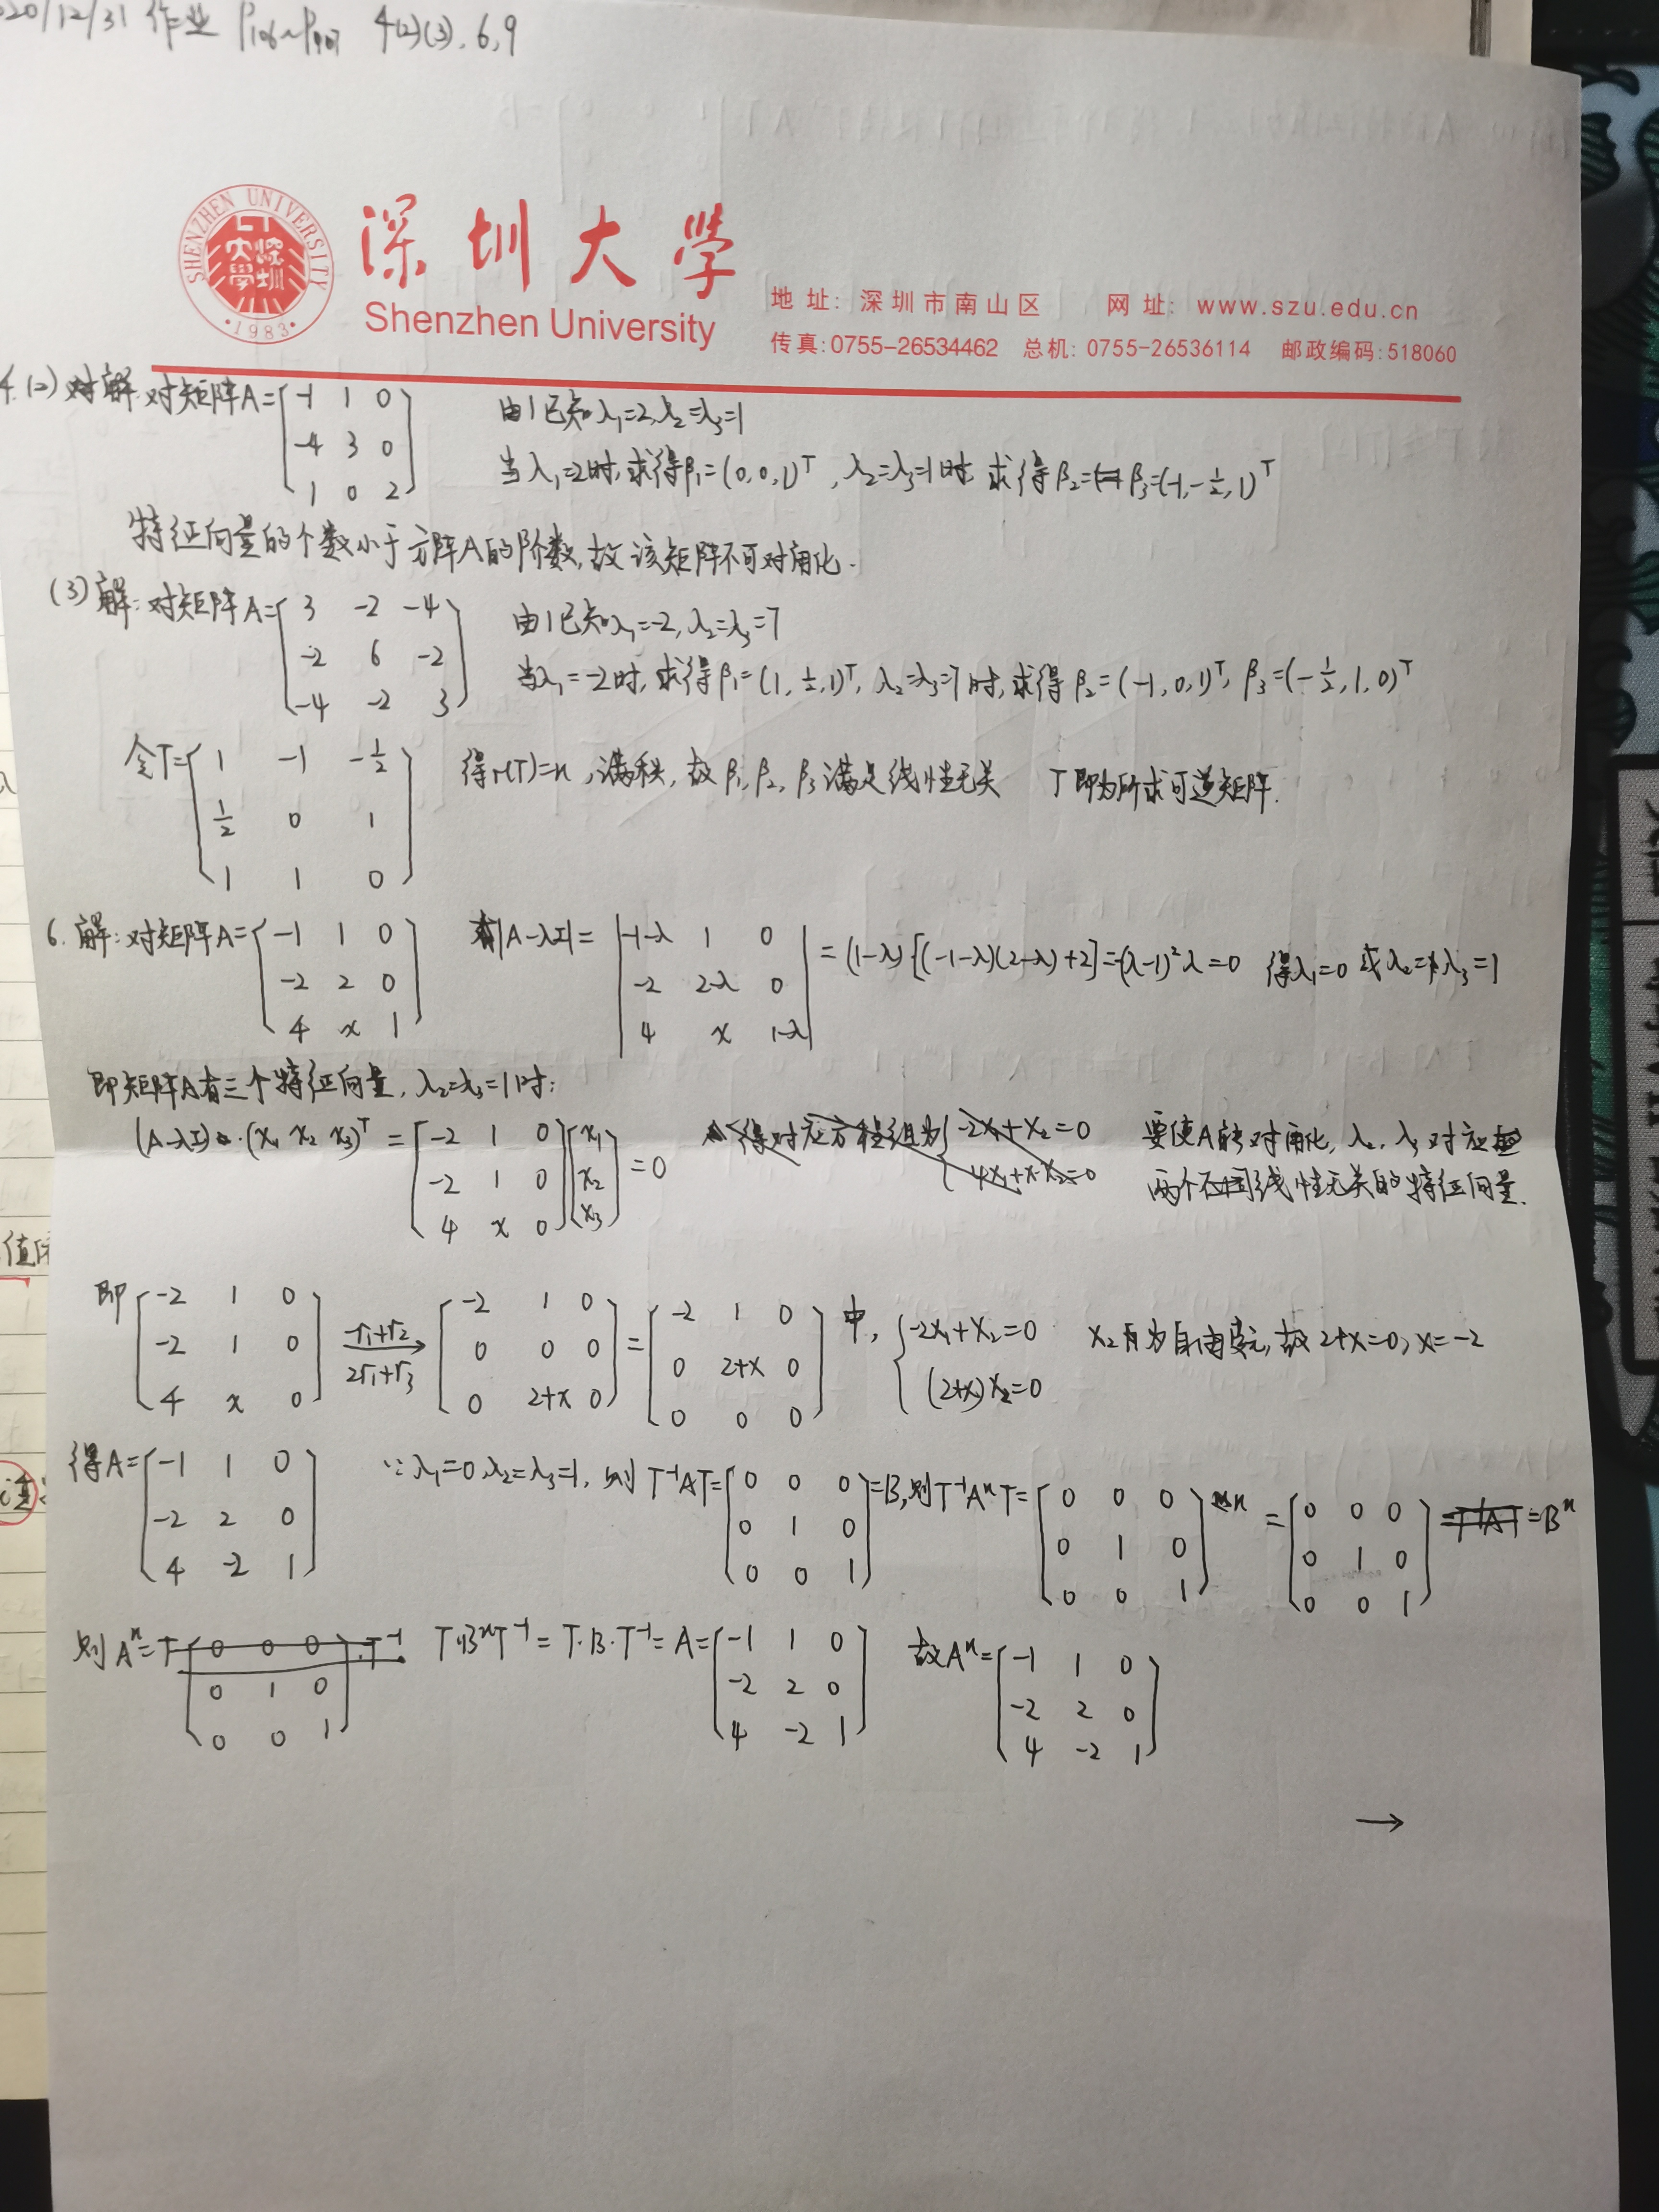 020/12/31 作业 P106~P107 4(2)(3), 6, 9
SHENZHEN UNIVERSITY
·1983·
深圳大学
Shenzhen University
地址: 深圳市南山区 网址: www.szu.edu.cn
传真:0755-26534462 总机: 0755-26536114 邮政编码:518060
4.(2) 解: 对矩阵A=[-1 1 0; -4 3 0; 1 0 2] 由1已知λ₁=2, λ₂=λ₃=1
当λ₁=2时, 求得β₁=(0,0,1)ᵀ, λ₂=λ₃=1时, 求得β₂=β₃=(-1,-½,1)ᵀ
特征向量的个数小于方阵A的阶数, 故该矩阵不可对角化.
(3) 解: 对矩阵A=[3 -2 -4; -2 6 -2; -4 -2 3] 由1已知λ₁=-2, λ₂=λ₃=7
当λ₁=-2时, 求得β₁=(1,½,1)ᵀ, λ₂=λ₃=7时, 求得β₂=(-1,0,1)ᵀ, β₃=(-½,1,0)ᵀ
令T=[1 -1 -½; ½ 0 1; 1 1 0] 得r(T)=n, 满秩, 故β₁, β₂, β₃满足线性无关 T即为所求可逆矩阵.
6. 解: 对矩阵A=[-1 1 0; -2 2 0; 4 x 1] 有|A-λI|=|-1-λ 1 0; -2 2-λ 0; 4 x 1-λ|=(1-λ)[(-1-λ)(2-λ)+2]=-(λ-1)²λ=0 得λ₁=0或λ₂=λ₃=1
即矩阵A有三个特征向量, λ₂=λ₃=1时:
(A-λI)·(x₁ x₂ x₃)ᵀ=[-2 1 0; -2 1 0; 4 x 0][x₁; x₂; x₃]=0 得对应方程组为{-2x₁+x₂=0; 4x₁+x·x₂=0 要使A能对角化, λ₂, λ₃对应
两个不同线性无关的特征向量.
即[-2 1 0; -2 1 0; 4 x 0] -r₁+r₂ 2r₁+r₃ → [-2 1 0; 0 0 0; 0 2+x 0]=[-2 1 0; 0 2+x 0; 0 0 0]中, {-2x₁+x₂=0; (2+x)x₂=0 x₂为自由变元, 故2+x=0, x=-2
得A=[-1 1 0; -2 2 0; 4 -2 1] ∵λ₁=0, λ₂=λ₃=1, 则T⁻¹AT=[0 0 0; 0 1 0; 0 0 1]=B, 则T⁻¹AⁿT=[0 0 0; 0 1 0; 0 0 1]ⁿ=[0 0 0; 0 1 0; 0 0 1]=T⁻¹AT=Bⁿ
则Aⁿ=T[0 0 0; 0 1 0; 0 0 1]·T⁻¹ T·BⁿT⁻¹=T·B·T⁻¹=A=[-1 1 0; -2 2 0; 4 -2 1] 故Aⁿ=[-1 1 0; -2 2 0; 4 -2 1]
→